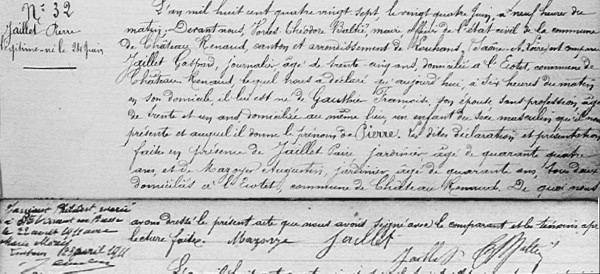 N° 32
Jaillet Pierre
légitime né le 24 Juin
L'an mil huit cent quatre vingt sept, le vingt quatre Juin, à neuf heures du
matin; Devant nous, Théodore, maire, officier de l'état civil de la commune
de Château Renaud, canton et arrondissement de Louhans, (Saône et Loire), ont comparu
Jaillet Gaspard, journalier, âgé de trente cinq ans, domicilié à l'Ecotet, commune de
Château Renaud, lequel nous a déclaré qu'aujourd'hui, à six heures du matin
en son domicile, il lui est né de Gauthier Françoise, son épouse, sans profession, âgée
de trente et un ans, domiciliée au même lieu, un enfant du sexe masculin qu'il nous
présente et auquel il donne le prénom de Pierre. Les dites déclaration et présentation
faites en présence de Jaillet jardinier âgé de quarante quatre
ans, et de Mazoyer Augustin, jardinier, âgé de quarante ans, tous deux
domiciliés à l'Ecotet, commune de Château Renaud. De quoi nous
avons dressé le présent acte que nous avons signé avec le comparant et les témoins après
lecture faite. Mazoyer Jaillet
Jaillet
marié
à
le 22 avril 1911 avec
Marie
avril 1911